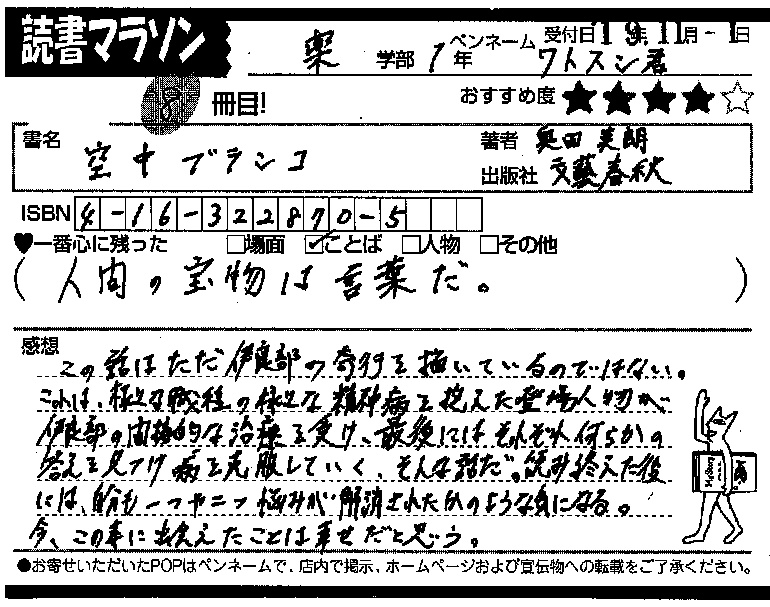 読書マラソン
薬 学部 1年 ペンネーム ワトスン君 受付日 19年 11月-1日
8 冊目! おすすめ度 ★★★★☆
書名 空中ブランコ
著者 奥田英朗
出版社 文藝春秋
ISBN 4-16-322870-5
♥一番心に残った □場面 ☑ことば □人物 □その他
(人間の宝物は言葉だ。)
感想
この話はただ伊良部の奇行を描いているのではない。
これは、様々な職種の様々な精神病を抱えた登場人物が
伊良部の間接的な治療を受け、最後にはそれぞれ何らかの
答えを見つけ病を克服していく、そんな話だ。読み終えた後
には、自分も一つや二つ悩みが解消されたかのような気になる。
今、この本に出会えたことは幸せだと思う。
●お寄せいただいたPOPはペンネームで、店内で掲示、ホームページおよび宣伝物への転載をご了承ください。